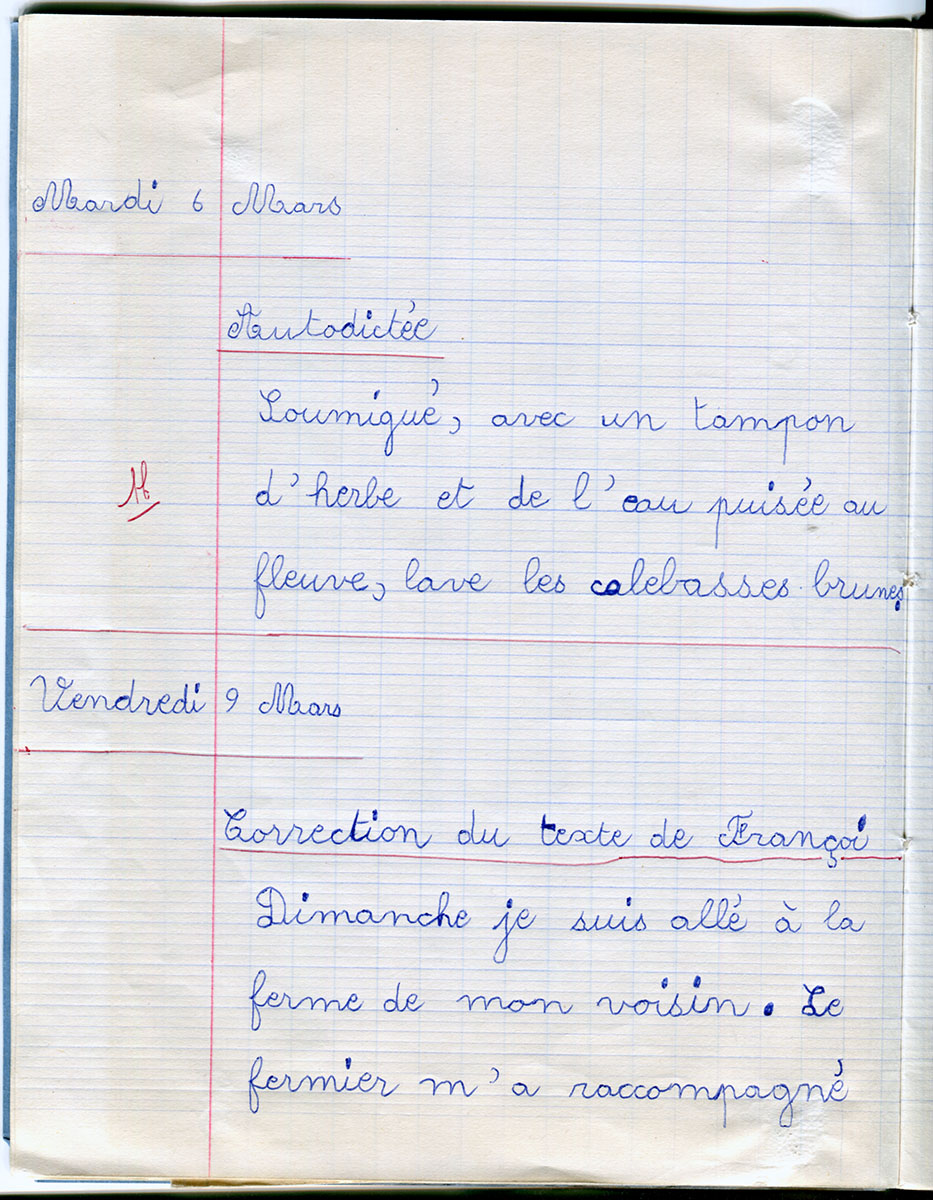 Mardi 6 Mars
Autodictée
Loumigué, avec un tampon
d'herbe et de l'eau puisée au
fleuve, lave les calebasses brunes.
Vendredi 9 Mars
Correction du texte de Françoi
Dimanche je suis allé à la
ferme de mon voisin. Le
fermier m'a raccompagné